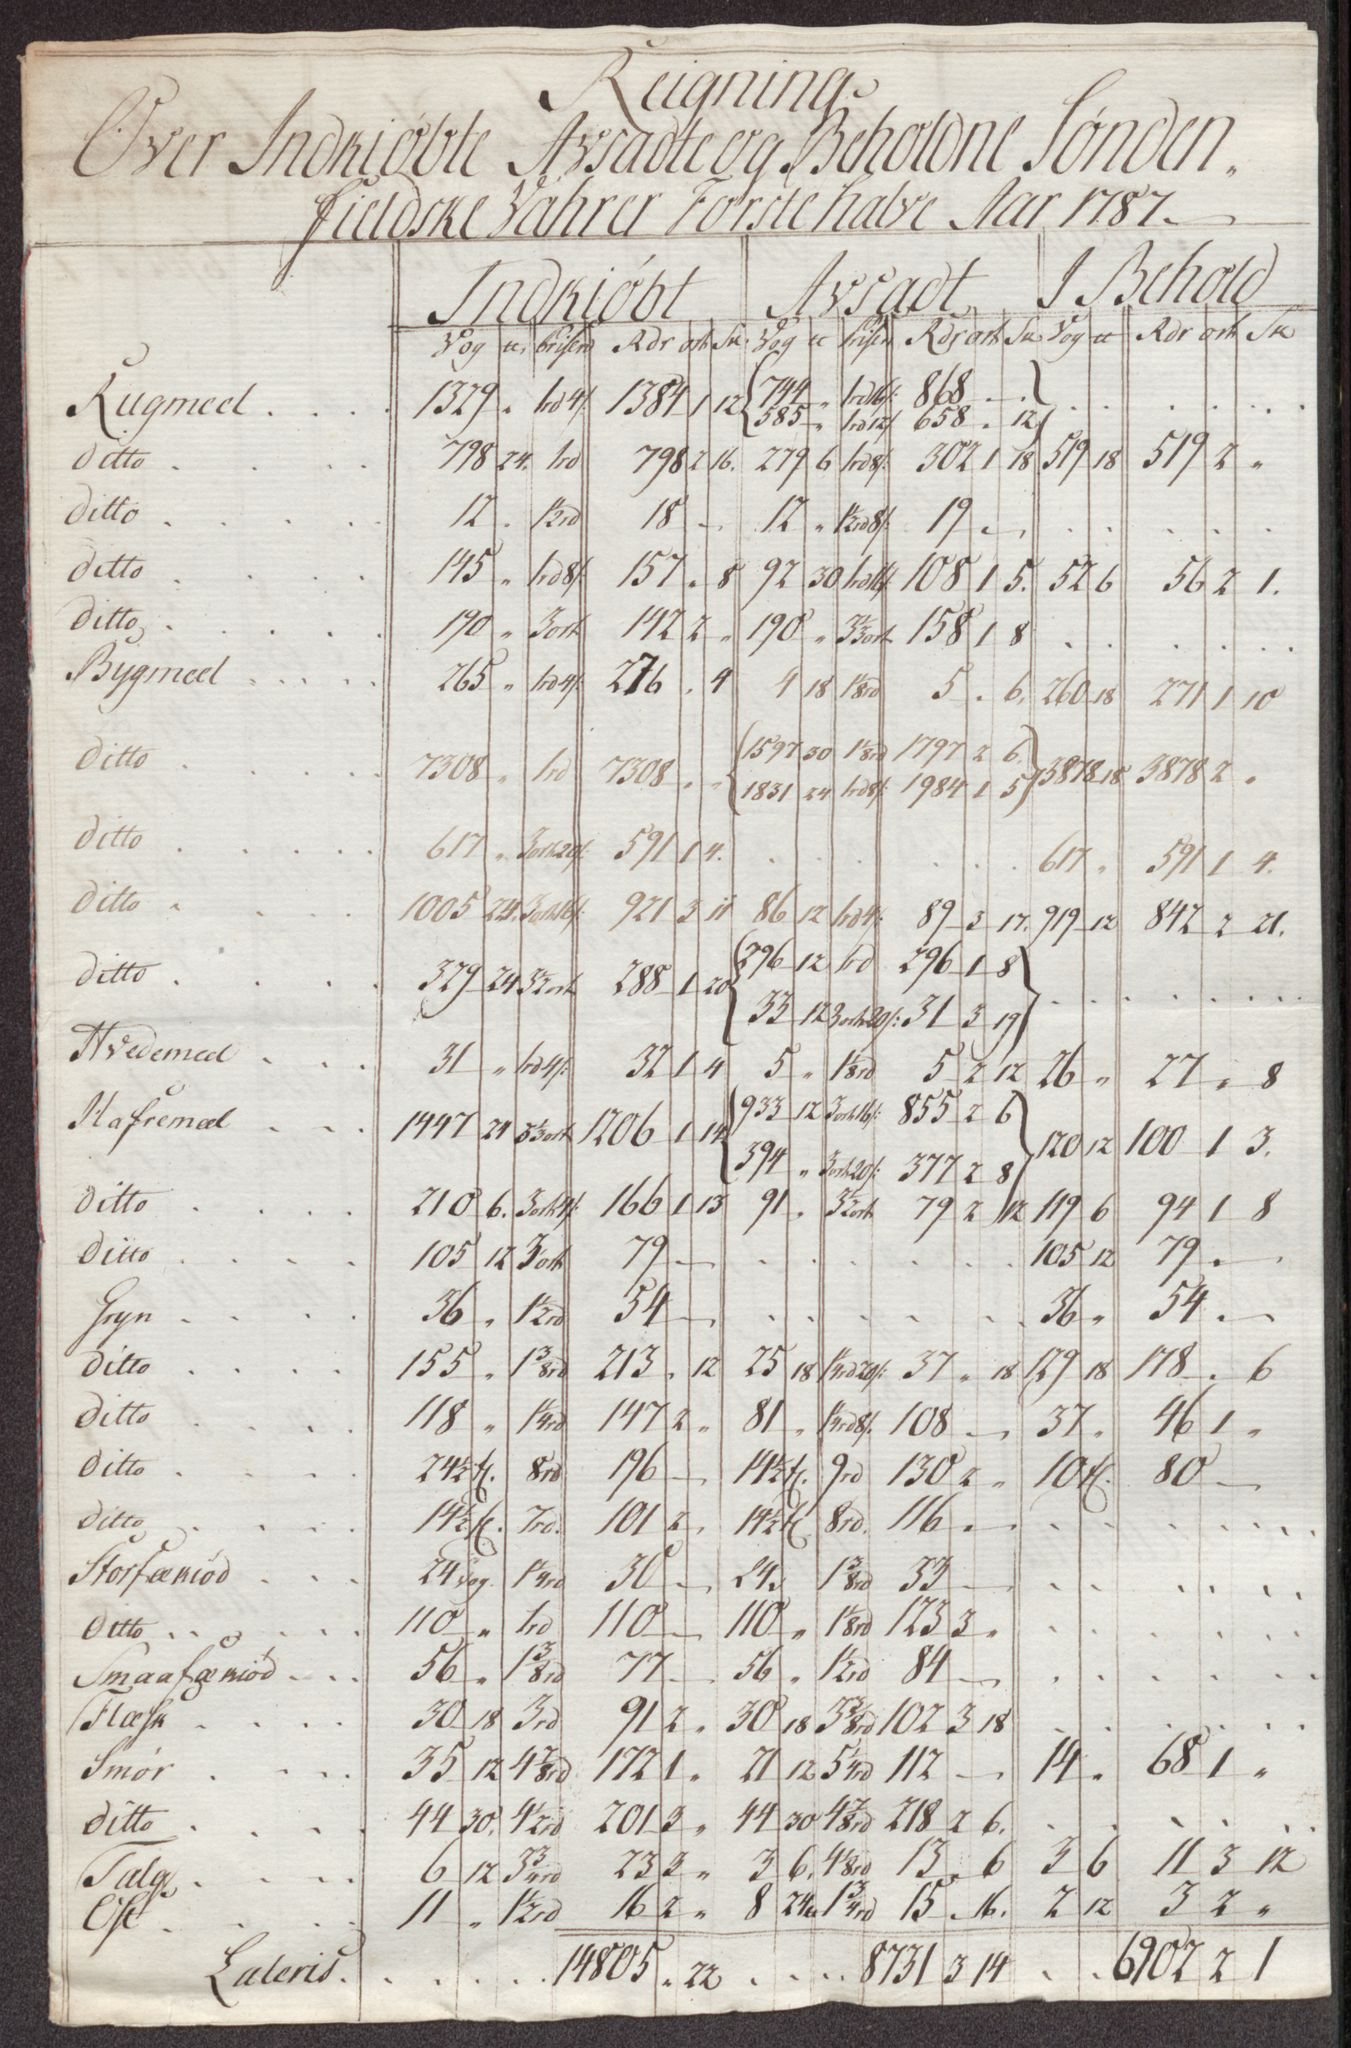 Reigning
Over Indkiøbte Avsadte og Beholdne Sønden„
fieldske Vahrer Første halve Aar 1787.
Indkiøbt Avsadt I Behold
Vog ℔ Prisen Rdr ort Sk Vog ℔ Prisen Rdr ort Sk Vog ℔ Rdr ort Sk
Rugmeel . . . . 1329 „ 1rd 4s: 1384 1 12 { 744 „ 1rd 16s: 868 . —
585 „ 1rd 12s 658 „ 12 } . . . . .
ditto . . . . 798 24 1rd 798 2 16. 279 6 1rd 8s: 302 1 18 519 18 519 2 „
ditto . . . . 12 „ 1½rd 18 — 12 „ 1½rd 8s: 19 . — . . . . .
ditto . . . . 145 „ 1rd 8s: 157 „ 8 92 30 1rd 16s 108 1 5. 52 6 56 2 1.
ditto . . . . 190 „ 3ort 142 2 „ 190 „ 3⅓ort 158 1 8 . . . . .
Bÿgmeel . . . . 265 „ 1rd 4s: 276 „ 4 4 18 1⅛rd 5 „ 6. 260 18 271 1 10
ditto . . . . 7308 „ 1rd 7308 „ „ { 1597 30 1⅛rd 1797 2 6.
1831 24 1rd 8s: 1984 1 5 } 3878 18 3878 2 „
ditto . . . . 617 „ 3ort 20s: 591 1 4. . . . . . . 617 „ 591 1 4.
ditto . . . . 1005 24 3ort 16s: 921 3 11 86 12 1rd 4s: 89 3 17. 919 12 842 2 21.
ditto . . . . 329 24 3½ort 288 1 20 { 296 12 1rd 296 1 8
33 12 3ort 20s: 31 3 19 } . . . . .
Hvedemeel . . . 31 „ 1rd 4s: 32 1 4 5 „ 1⅛rd 5 2 12 26 „ 27 „ 8
Hafremeel . . . 1447 24 3⅓ort 1206 1 14 { 933 12 3ort 16s: 855 2 6
394 „ 3ort 20s: 377 2 8 } 120 12 100 1 3.
ditto . . . . 210 6. 3ort 4s: 166 1 13 91 „ 3½ort 79 2 12 119 6 94 1 8
ditto . . . . 105 12 3ort 79 — . . . . . . 105 12 79 . —
Gryn . . . . 36 „ 1½rd 54 — . . . . . . 36 „ 54 . —
ditto . . . . 155 „ 1⅜rd 213 „ 12 25 18 1¼rd 20s: 37 „ 18 129 18 178 „ 6
ditto . . . . 118 „ 1¼rd 147 2 „ 81 „ 1¼rd 8s. 108 — 37 „ 46 1 „
ditto . . . . 24½ 8rd 196 — 14½ 9rd 130 2 „ 10 80 —
ditto . . . . 14½ 7rd. 101 2 „ 14½ 8rd. 116 . — . . . . .
Storfækiød . . . 24 vog. 1¼rd 30 — 24 „ 1⅜rd 33 — . . . . .
ditto . . . . 110 „ 1rd 110 — 110 „ 1⅛rd 123 3 „ . . . . .
Smaafækiød . . . 56 „ 1⅜rd 77 — 56 „ 1½rd 84 — . . . . .
Flæsk . . . . 30 18 3rd 91 2 „ 30 18 3⅜rd 102 3 18 . . . . .
Smør . . . . 35 12 4⅞rd 172 1 „ 21 12 5¼rd 112 — 14 „ 68 1 „
ditto . . . . 44 30. 4½rd 201 3 „ 44 30 4⅞rd 218 2 6. . . . . .
Talg . . . . 6 12 3¾rd 23 3 „ 3 6. 4⅛rd 13 „ 6 3 6 11 3 12
Ost . . . . 11 „ 1½rd 16 2 „ 8 24 1¾rd 15 „ 16. 2 12 3 2 „
Lateris. . . . . . 14805 „ 22 . . . . 8731 3 14 . . 6902 2 1